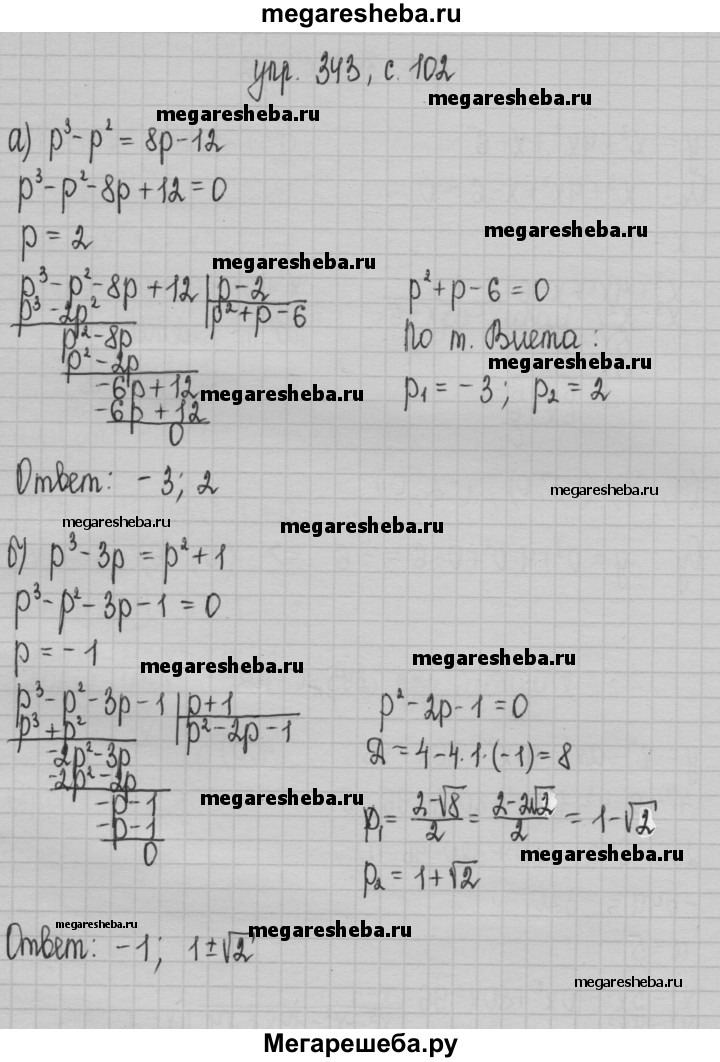 megaresheba.ru
упр. 343, с. 102
megaresheba.ru
megaresheba.ru
а) p³ - p² = 8p - 12
p³ - p² - 8p + 12 = 0
p = 2
megaresheba.ru
megaresheba.ru
p³ - p² - 8p + 12 | p - 2
p³ - 2p² | p² + p - 6
p² - 8p
p² - 2p
-6p + 12
-6p + 12
0
megaresheba.ru
p² + p - 6 = 0
По т. Виета:
megaresheba.ru
p₁ = -3; p₂ = 2
Ответ: -3; 2
megaresheba.ru
megaresheba.ru
megaresheba.ru
б) p³ - 3p = p² + 1
p³ - p² - 3p - 1 = 0
p = -1
megaresheba.ru
megaresheba.ru
megaresheba.ru
p³ - p² - 3p - 1 | p + 1
p³ + p² | p² - 2p - 1
-2p² - 3p
-2p² - 2p
-p - 1
-p - 1
0
p² - 2p - 1 = 0
Д = 4 - 4·1·(-1) = 8
megaresheba.ru
p₁ = (2 - √8)/2 = (2 - 2√2)/2 = 1 - √2
megaresheba.ru
p₂ = 1 + √2
megaresheba.ru
megaresheba.ru
Ответ: -1; 1 ± √2
megaresheba.ru
Мегарешеба.ру